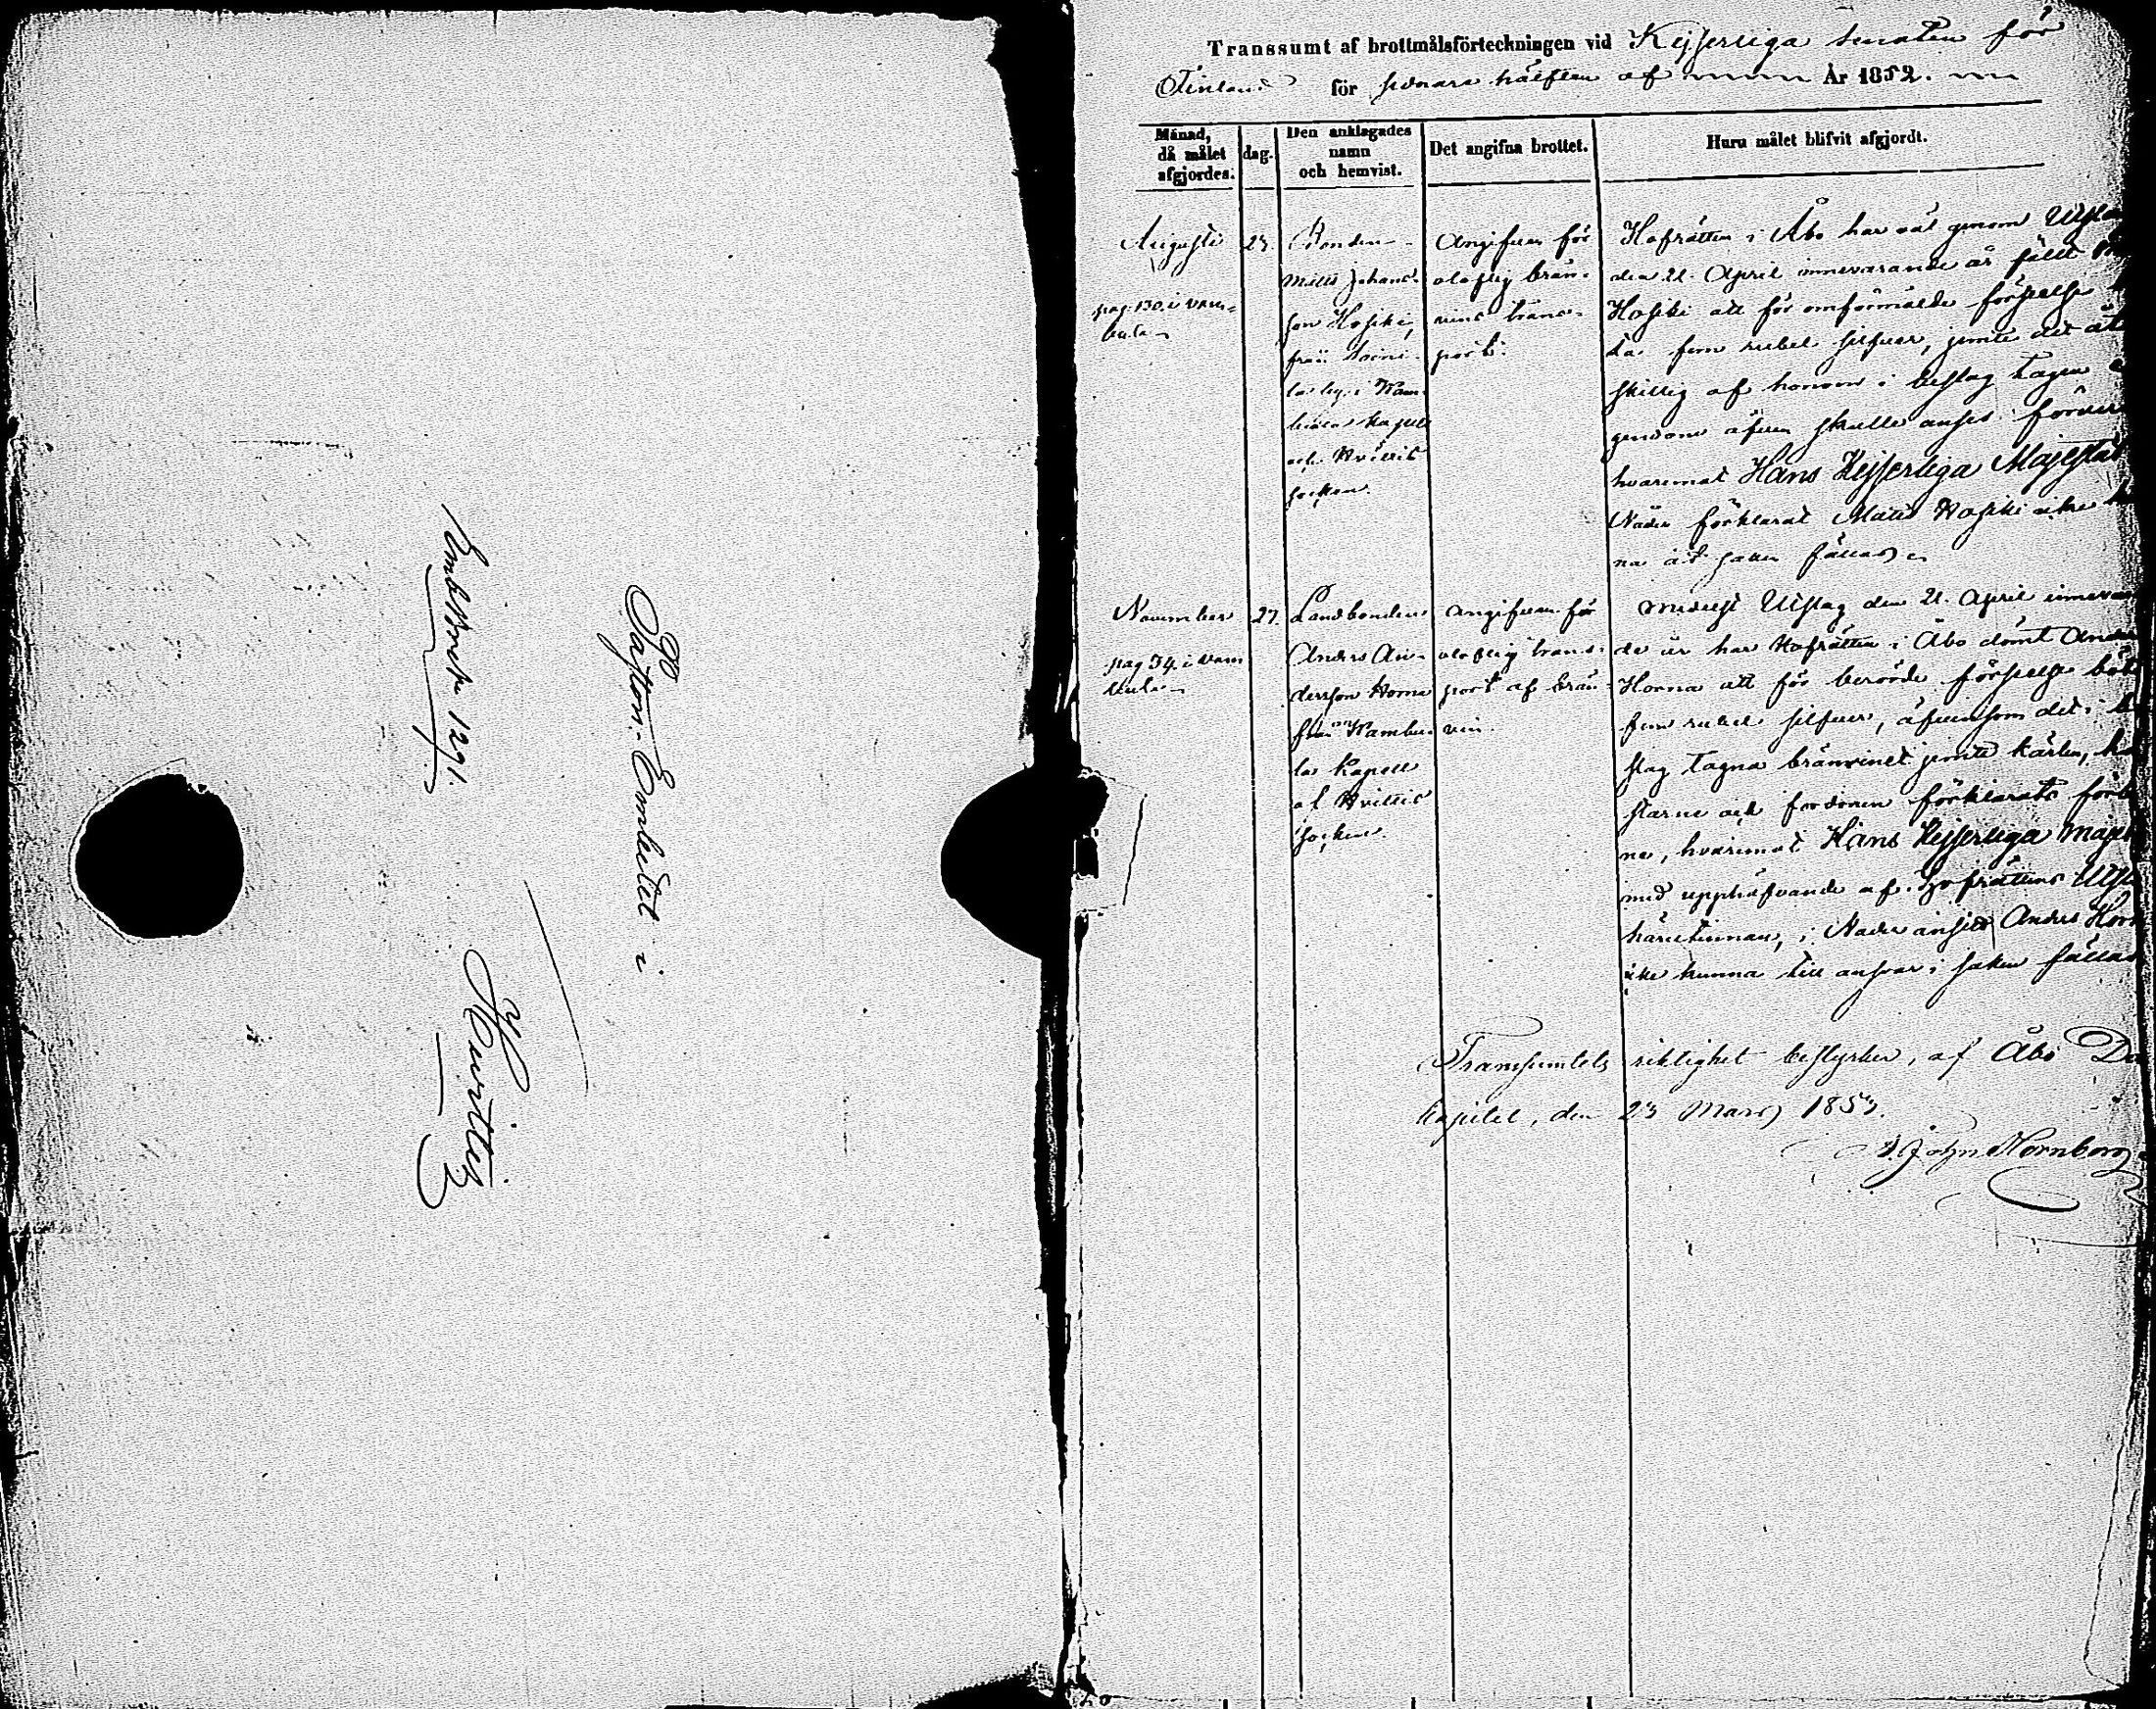 Embtsbref 1291.
Pastors-Embetet i
Hvittis
Transsumt af brottmålsförteckningen vid Kejserliga Senaten för
Finland för sednare hälften af År 1852.
Månad, då målet afgjordes.
dag.
Den anklagades namn och hemvist.
Det angifna brottet.
Huru målet blifvit afgjordt.
Augusti
pag. 130. i Vam-
bula
27.
Bonden
Matts Johans-
son Hossiki
från Soini-
la by i Vam-
bula kapell
och Hvittis
socken.
Angifven för
olaflig brän-
vins trans-
port.
Hofrätten i Åbo har väl genom Utslag
den 21. April innevarande år fällt
Hossiki att för omförmälde förseelse
ta fem rubel silfver, jemte det
skillig af honom i beslag tagen
gendom äfven skulle anses förver
hvaremot Hans Kejserliga Majestät
Nåder förklarat Matts Hossiki icke
na åt saken fällas
November
pag 34. i Vam
bula
27.
Landbonden
Anders An-
dersson Horna
från Vambu-
la Kapell
af Hvittis
socken.
Angifven för
olaflig trans-
port af brän-
vin.
medelst Utslag den 21. April innevaran
de år har Hofrätten i Åbo dömt Anders
Horna att för berörde förseelse böta
fem rubel silfver, äfvensom det i be
slag tagna bränvinet jemte kärlen, hä
starne och fordonen förklarats förbru
na, hvaremot Hans Kejserliga Maje
med upphäfvande af Hofrättens Utslag
härutinnan, i Nåder ansett Anders Horn
icke kunna till ansvar i saken fällas
Transsumtets riktighet bestyrker, af Åbo Do
kapitel, den 23 Mars 1853.
John Hornborg